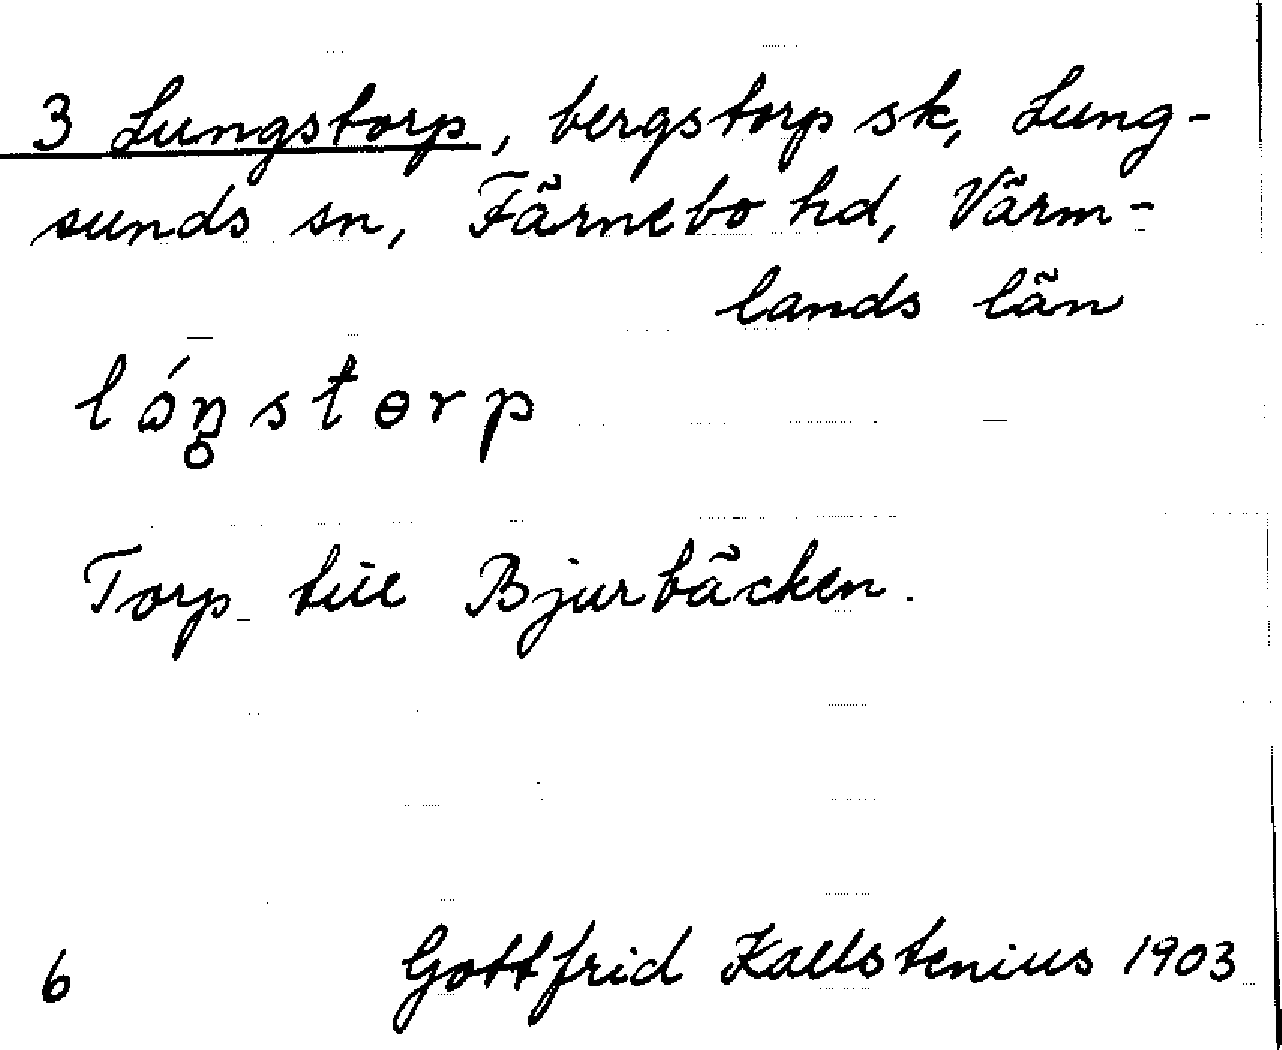 3 Lungstorp, bergstorp sk, Lung-
sunds sn, Färnebo hd, Värm-
lands län
lóŋ̥storp
Torp till Bjurbäcken.
6 Gottfrid Kallstenius 1903